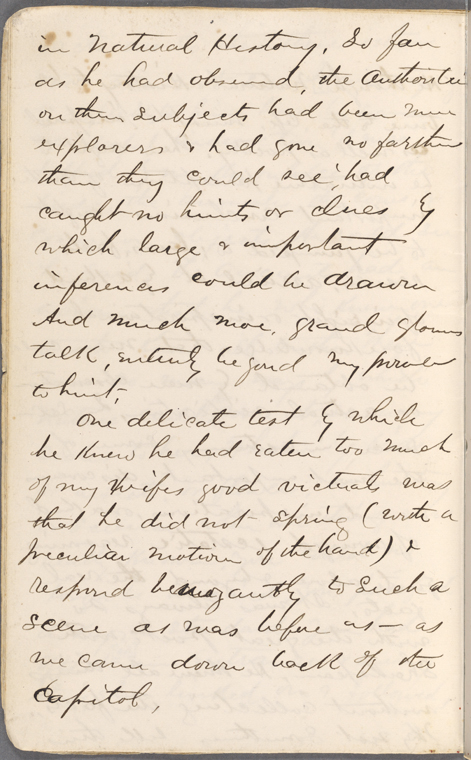 in Natural History. So far
as he had observed, the authorities
on these subjects had been mere
explorers & had gone no farther
than they could see, had
caught no hints or clues by
which large & important
inferences could be drawn
And much more, grand glorious
talk, entirely beyond my power
to hint.
One delicate test by which
he knew he had eaten too much
of my wifes good victuals was
that he did not spring (with a
peculiar motion of the hand) &
respond to such a
scene as was before us — as
we came down back of the
Capitol,